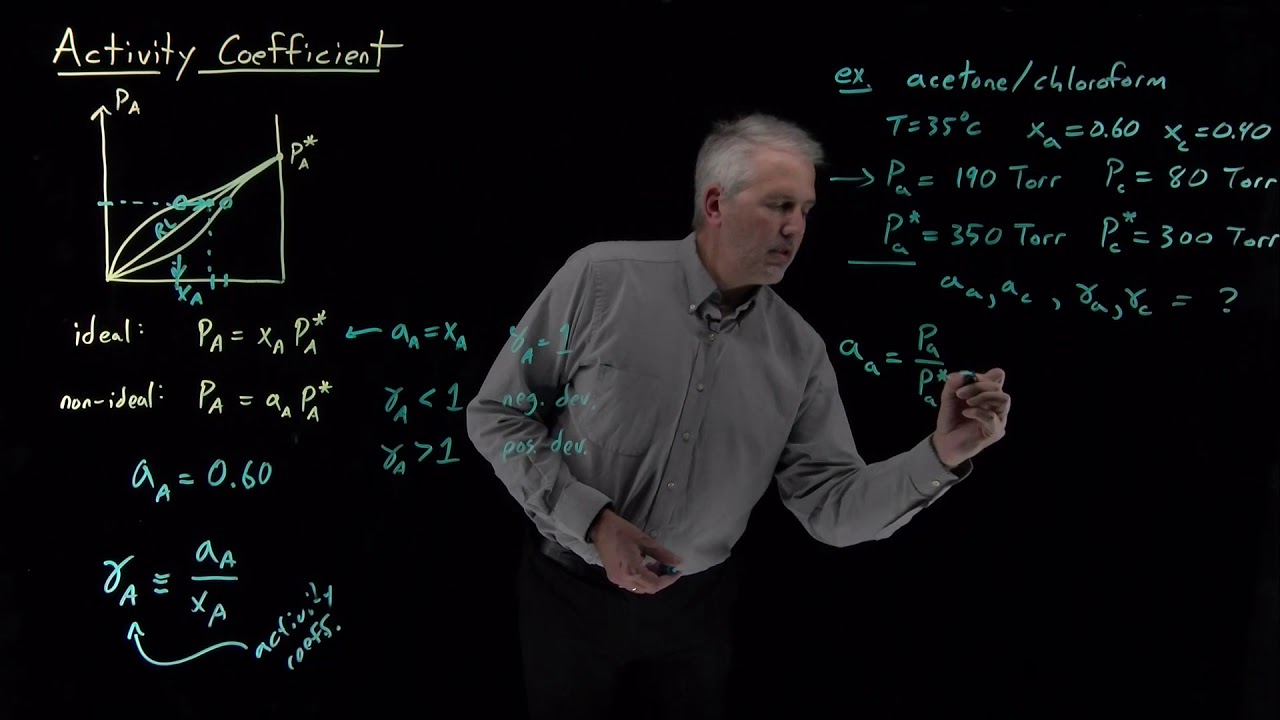 Activity Coefficient
P_A
P_A*
RL
x_A
ideal: P_A = x_A P_A* ← a_A = x_A γ_A = 1
non-ideal: P_A = a_A P_A* γ_A < 1 neg. dev.
γ_A > 1 pos. dev.
a_A = 0.60
γ_A ≡ a_A / x_A
activity
coeff.
ex. acetone/chloroform
T = 35°C x_a = 0.60 x_c = 0.40
→ P_a = 190 Torr P_c = 80 Torr
P_a* = 350 Torr P_c* = 300 Torr
a_a, a_c, γ_a, γ_c = ?
a_a = P_a / P_a*